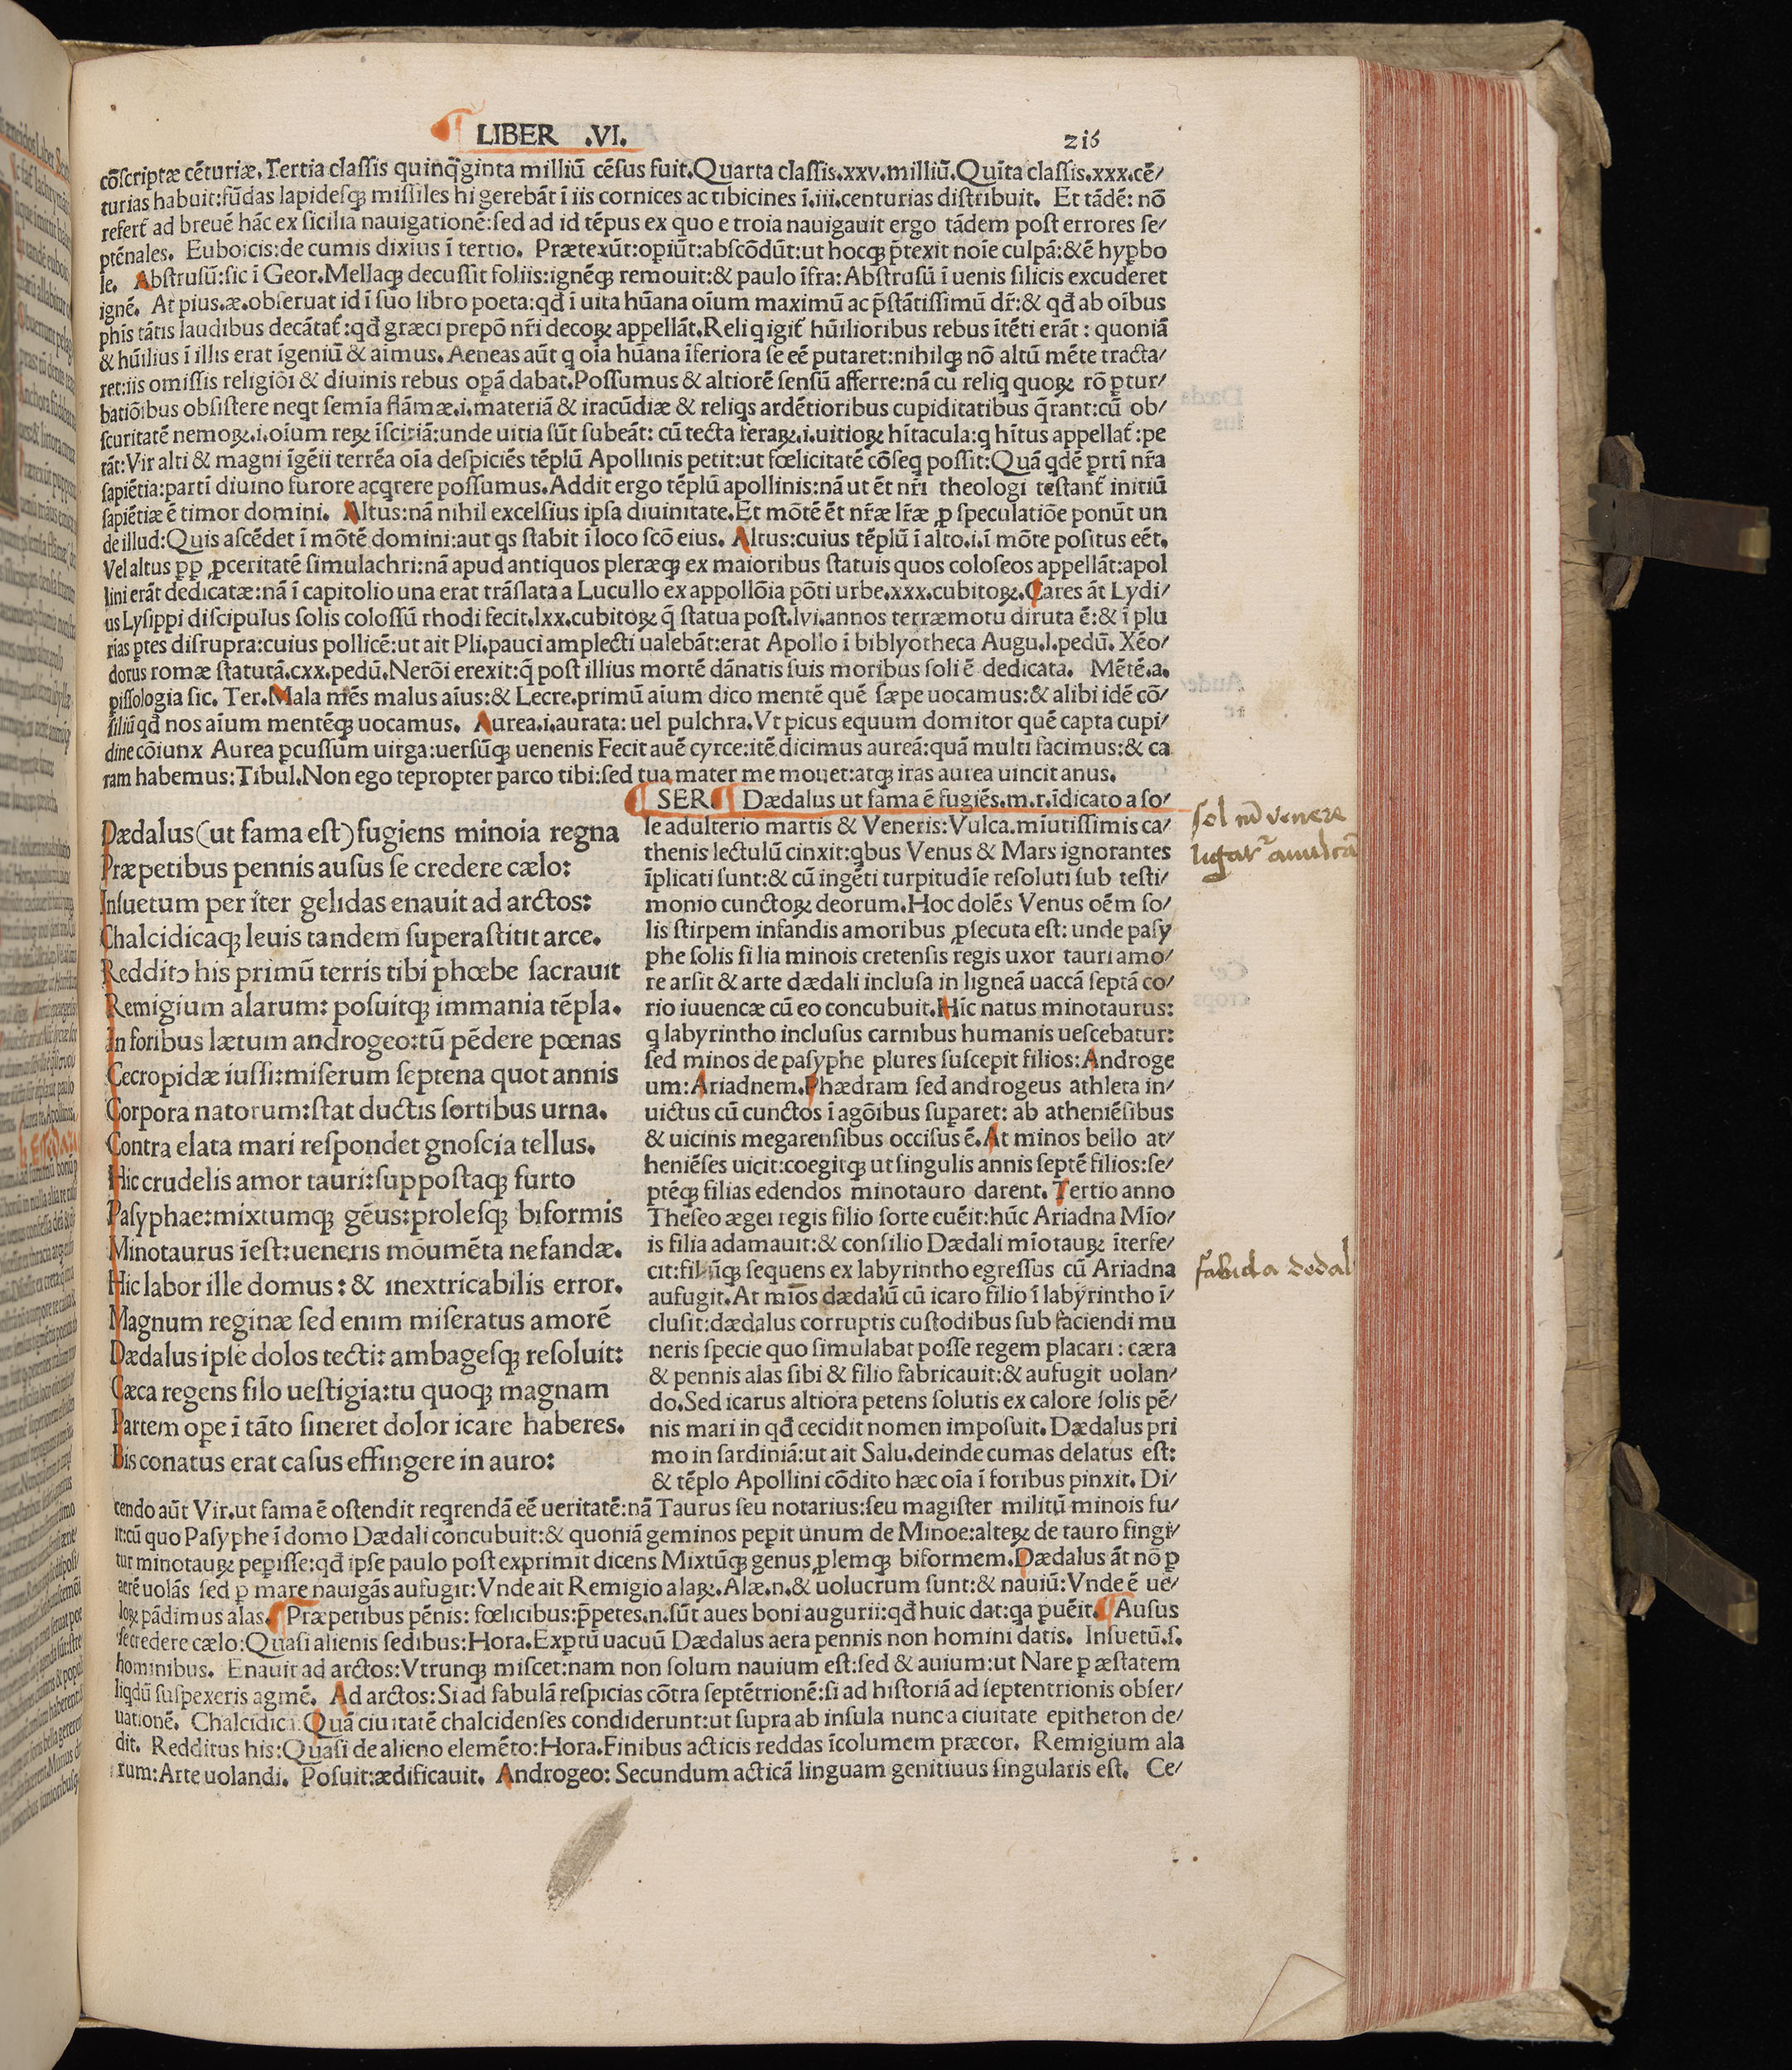 LIBER .VI. 216
cōſcriptæ cēturiæ. Tertia claſſis quinq̄ginta milliū cēſus fuit. Quarta claſſis.xxv.milliū. Quīta claſſis.xxx.cē/
turias habuit:fūdas lapideſqꝫ miſſiles hi gerebāt ī iis cornices ac tibicines ī.iii.centurias diſtribuit. Et tādē: nō
refert̄ ad breuē hāc ex ſicilia nauigationē:ſed ad id tēpus ex quo e troia nauigauit ergo tādem poſt errores ſe/
ptēnales. Euboicis:de cumis dixius ī tertio. Prætexūt:opiūt:abſcōdūt:ut hocqꝫ p̄texit noīe culpā:&ē hyꝑbo
le. Abſtruſū:ſic ī Geor.Mellaqꝫ decuſſit foliis:ignēqꝫ remouit:& paulo īfra: Abſtruſū ī uenis ſilicis excuderet
ignē. At pius.æ.obſeruat id ī ſuo libro poeta:qđ ī uita hūana oīum maximū ac p̄ſtātiſſimū dr̄:& qđ ab oībus
phīs tātis laudibus decātat̄:qđ græci prepō nr̄i decoꝝ appellāt.Reliq igit̄ hūilioribus rebus ītēti erāt : quoniā
& hūilius ī illis erat īgeniū & aimus. Aeneas aūt q oīa hūana īferiora ſe eē putaret:nihilqꝫ nō altū mēte tracta/
ret:iis omiſſis religiōi & diuinis rebus opā dabat.Poſſumus & altiorē ſenſū afferre:nā cu reliq quoꝝ rō ꝑtur/
batiōibus obſiſtere neqt ſemīa flāmæ.i.materiā & iracūdiæ & reliqs ardētioribus cupiditatibus q̄rant:cū ob/
ſcuritatē nemoꝝ.i.oīum reꝝ īſcitiā:unde uitia ſūt ſubeāt: cū tecta feraꝝ.i.uitioꝝ hītacula:q hītus appellat̄:pe
tāt:Vir alti & magni īgēii terrēa oīa deſpiciēs tēplū Apollinis petit:ut fœlicitatē cōſeq poſſit:Quā qdē ꝑrtī nr̄a
ſapiētia:parti diuino furore acqrere poſſumus.Addit ergo tēplū apollinis:nā ut ēt nr̄i theologi teſtant̄ initiū
ſapiētiæ ē timor domini. Altus:nā nihil excelſius ipſa diuinitate.Et mōtē ēt nr̄æ lr̄æ ꝓ ſpeculatiōe ponūt un
de illud:Quis aſcēdet ī mōtē domini:aut qs ſtabit ī loco ſcō eius. Altus:cuius tēplū ī alto.i.ī mōte poſitus eēt.
Vel altus ꝓp ꝓceritatē ſimulachri:nā apud antiquos pleræqꝫ ex maioribus ſtatuis quos coloſeos appellāt:apol
lini erāt dedicatæ:nā ī capitolio una erat trāſlata a Lucullo ex appollōia pōti urbe.xxx.cubitoꝝ.Cares āt Lydi/
us Lyſippi diſcipulus ſolis coloſſū rhodi fecit.lxx.cubitoꝝ q̄ ſtatua poſt.lvi.annos terræmotu diruta ē:& ī plu
rias ꝑtes diſrupra:cuius pollicē:ut ait Pli.pauci amplecti ualebāt:erat Apollo ī biblyotheca Augu.l.pedū. Xēo/
dorus romæ ſtaturā.cxx.pedū.Nerōi erexit:q̄ poſt illius mortē dānatis ſuis moribus ſoli ē dedicata. Mētē.a.
piſſologia ſic. Ter.Mala mēs malus aīus:& Lecre.primū aīum dico mentē quē ſæpe uocamus:& alibi idē cō/
ſiliū qđ nos aīum mentēqꝫ uocamus. Aurea.i.aurata: uel pulchra.Vt picus equum domitor quē capta cupi/
dine cōiunx Aurea ꝑcuſſum uirga:uerſūqꝫ uenenis Fecit auē cyrce:itē dicimus aureā:quā multi facimus:& ca
ram habemus:Tibul.Non ego te propter parco tibi:ſed tua mater me mouet:atqꝫ iras aurea uincit anus.
Dædalus(ut fama eſt)fugiens minoia regna
Præpetibus pennis auſus ſe credere cælo:
Inſuetum per iter gelidas enauit ad arctos:
Chalcidicaqꝫ leuis tandem ſuperaſtitit arce.
Reddito his primū terris tibi phœbe ſacrauit
Remigium alarum: poſuitqꝫ immania tēpla.
In foribus lætum androgeo:tū pēdere pœnas
Cecropidæ iuſſi:miſerum ſeptena quot annis
Corpora natorum:ſtat ductis ſortibus urna.
Contra elata mari reſpondet gnoſcia tellus.
Hic crudelis amor tauri:ſuppoſtaqꝫ furto
Paſyphae:mixtumqꝫ gēus:proleſqꝫ biformis
Minotaurus īeſt:ueneris mōumēta nefandæ.
Hic labor ille domus: & inextricabilis error.
Magnum reginæ ſed enim miſeratus amorē
Dædalus ipſe dolos tecti: ambageſqꝫ reſoluit:
Cæca regens filo ueſtigia:tu quoqꝫ magnam
Partem oꝑe ī tāto ſineret dolor icare haberes.
Bis conatus erat caſus effingere in auro:
SER. Dædalus ut fama ē fugiēs.m.r.īdicato a ſo/
le adulterio martis & Veneris:Vulca.miutiſſimis ca/
thenis lectulū cinxit:qbus Venus & Mars ignorantes
īplicati ſunt:& cū ingēti turpitudīe reſoluti ſub teſti/
monio cunctoꝝ deorum.Hoc dolēs Venus oēm ſo/
lis ſtirpem infandis amoribus ꝓſecuta eſt: unde paſy
phe ſolis filia minois cretenſis regis uxor tauri amo/
re arſit & arte dædali incluſa in ligneā uaccā ſeptā co/
rio iuuencæ cū eo concubuit.Hic natus minotaurus:
q labyrintho incluſus carnibus humanis ueſcebatur:
ſed minos de paſyphe plures ſuſcepit filios:Androge
um:Ariadnem.Phædram ſed androgeus athleta in/
uictus cū cunctos ī agōibus ſuꝑaret: ab atheniēſibus
& uicinis megarenſibus occiſus ē.At minos bello at/
heniēſes uicit:coegitqꝫ ut ſingulis annis ſeptē filios:ſe/
ptēqꝫ filias edendos minotauro darent. Tertio anno
Theſeo ægei regis filio ſorte euēit:hūc Ariadna Mīo/
is filia adamauit:& conſilio Dædali mīotauꝝ īterfe/
cit:filūqꝫ ſequens ex labyrintho egreſſus cū Ariadna
aufugit.At mīos dædalū cū icaro filio ī labyrintho ī/
cluſit:dædalus corruptis cuſtodibus ſub faciendi mu
neris ſpecie quo ſimulabat poſſe regem placari : cæra
& pennis alas ſibi & filio fabricauit:& aufugit uolan/
do.Sed icarus altiora petens ſolutis ex calore ſolis pē/
nis mari in qđ cecidit nomen impoſuit. Dædalus pri
mo in ſardiniā:ut ait Salu.deinde cumas delatus eſt:
& tēplo Apollini cōdito hæc oīa ī foribus pinxit. Di/
cendo aūt Vir.ut fama ē oſtendit reqrendā eē ueritatē:nā Taurus ſeu notarius:ſeu magiſter militū minois fu/
it:cū quo Paſyphe ī domo Dædali concubuit:& quoniā geminos peꝑit unum de Minoe:alteꝝ de tauro fingi/
tur minotauꝝ peꝑiſſe:qđ ipſe paulo poſt exprimit dicens Mixtūqꝫ genus ꝓlemqꝫ biformem.Dædalus āt nō ꝑ
aerē uolās ſed ꝑ mare nauigās aufugit:Vnde ait Remigio alaꝝ.Alæ.n.& uolucrum ſunt:& nauiū:Vnde ē ue/
loꝝ pādimus alas. Præpetibus pēnis: fœlicibus:p̄petes.n.ſūt aues boni augurii:qđ huic dat:qa ꝑuēit. Auſus
ſe credere cælo:Quaſi alienis ſedibus:Hora.Exꝑtū uacuū Dædalus aera pennis non homini datis. Inſuetū.ſ.
hominibus. Enauit ad arctos:Vtrunqꝫ miſcet:nam non ſolum nauium eſt:ſed & auium:ut Nare ꝑ æſtatem
liqdū ſuſpexeris agmē. Ad arctos:Si ad fabulā reſpicias cōtra ſeptētrionē:ſi ad hiſtoriā ad ſeptentrionis obſer/
uationē. Chalcidica:Quā ciuitatē chalcidenſes condiderunt:ut ſupra ab inſula nunc a ciuitate epitheton de/
dit. Redditus his:Quaſi de alieno elemēto:Hora.Finibus acticis reddas īcolumem præcor. Remigium ala
rum:Arte uolandi. Poſuit:ædificauit. Androgeo: Secundum acticā linguam genitiuus ſingularis eſt. Ce/
ſol venere
fabula dedal